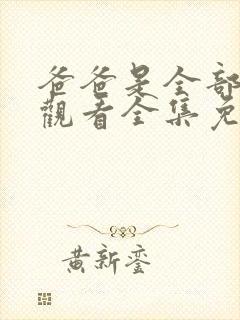 爸爸是全部
觀看全集免
黄新銮